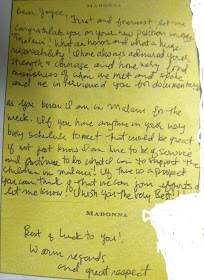 Dear Joyce,
First and foremost let me
congratulate you on your new position in
Malawi! What an honor and what a huge
responsibility. I have always admired your
strength & courage and have very fond
memories of when we met and spoke
and we interviewed you for documentary
As you know I am in Malawi for the
week. If you have anytime in your very
busy schedule to meet that would be great
if not just know I am here to be of service
and continue to do what I can to support the
children in Malawi. If there is a project
you can think of that we can join efforts
let me know! I wish you the very Best!
MADONNA
Best of luck to you!
Warm regards
and great respect